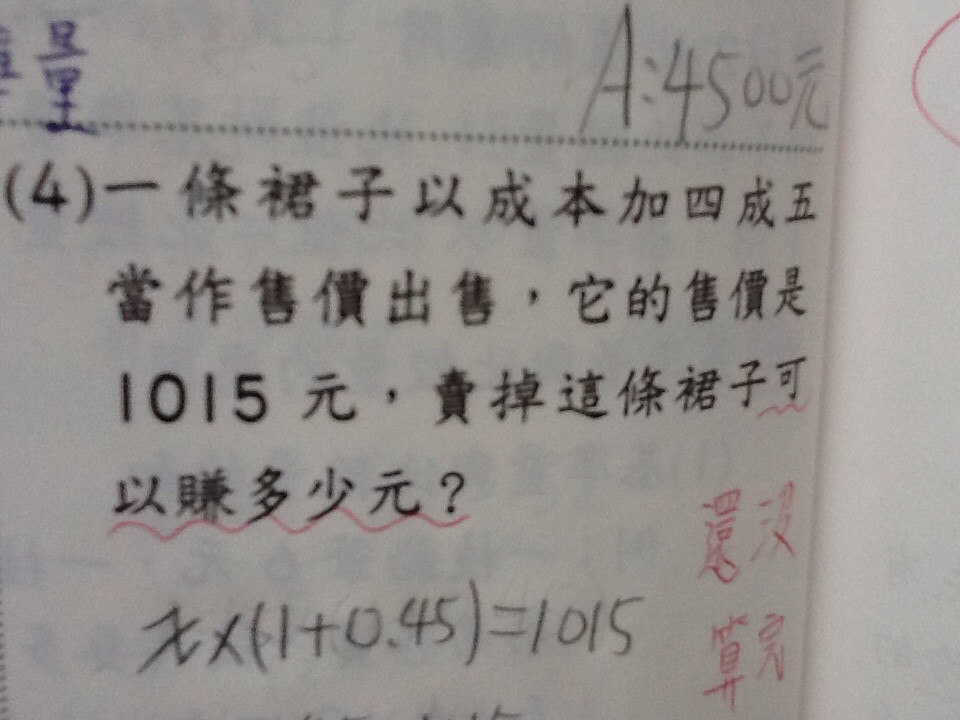 量
A:4500元
(4)一條裙子以成本加四成五
當作售價出售，它的售價是
1015元，賣掉這條裙子可
以賺多少元？
還沒
算完
x×(1+0.45)=1015